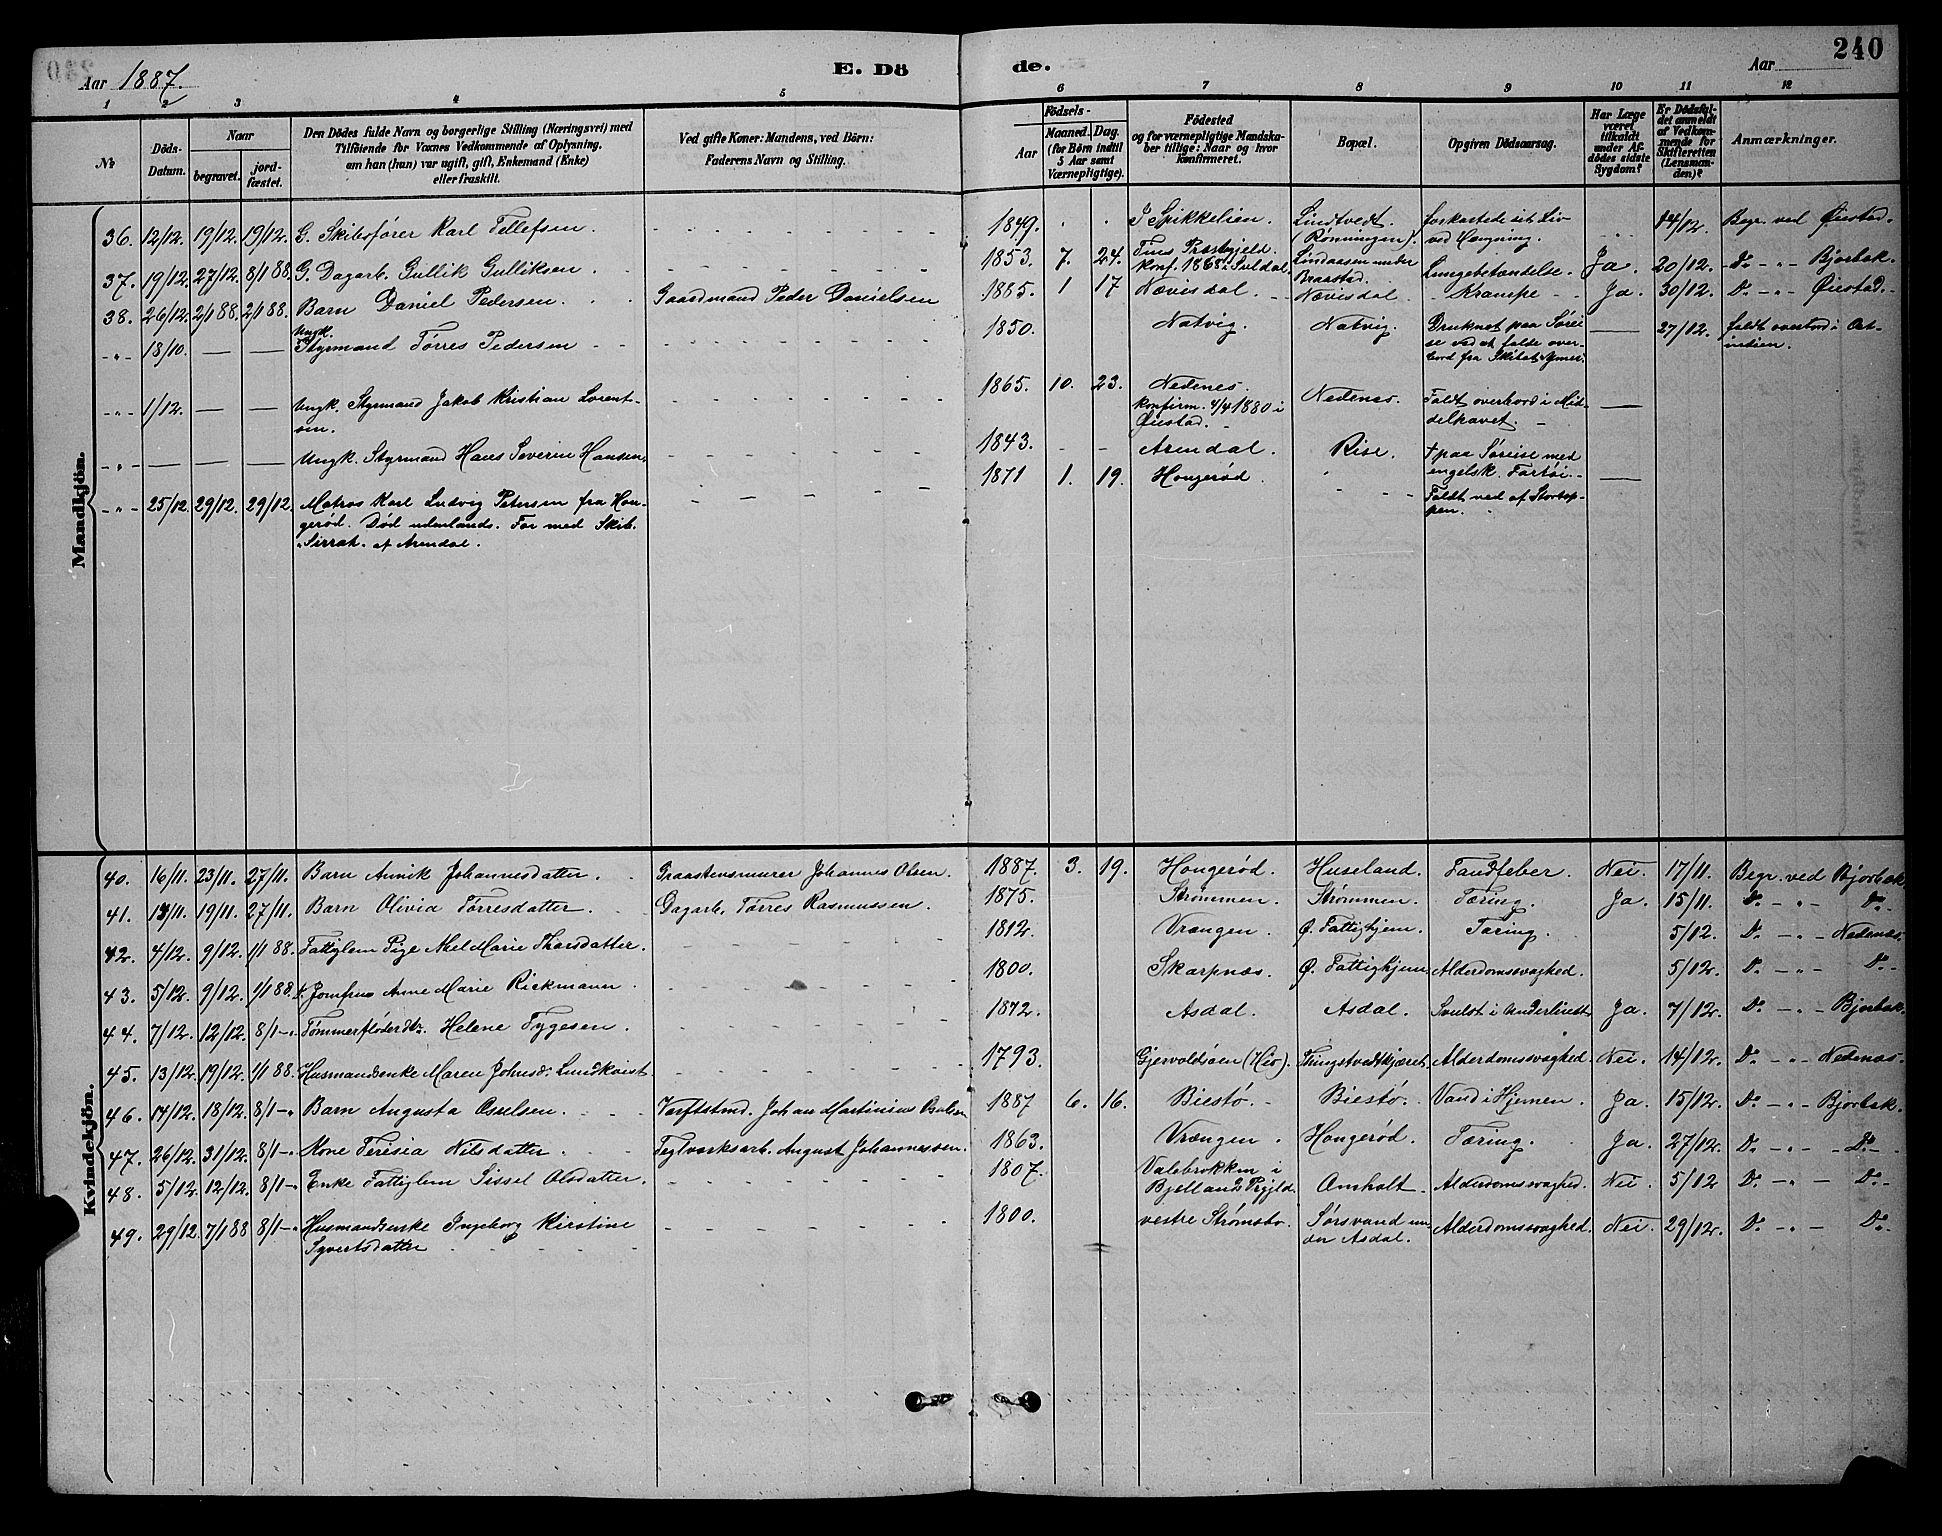 240
Aar 1887.
E. Dö de.
Aar
1 2 3 4 5 6 7 8 9 10 11 12
№
Döds-Datum.
Naar
begravet.
jord-fæstet.
Den Dödes fulde Navn og borgerlige Stilling (Næringsvei) med
Tilföiende for Voxnes Vedkommende af Oplysning,
om han (hun) var ugift, gift, Enkemand (Enke)
eller fraskilt.
Ved gifte Koner: Mandens, ved Börn:
Faderens Navn og Stilling.
Födsels-
Aar
Maaned. Dag.
(for Börn indtil
5 Aar samt
Værnepligtige).
Födested
og for værnepligtige Mandska-
ber tillige: Naar og hvor
konfirmeret.
Bopæl.
Opgiven Dödsaarsag.
Har Læge
været
tilkaldt
under Af-
dödes sidste
Sygdom?
Er Dödsfal-
det anmeldt
af Vedkom-
mende for
Skifteretten
(Lensman-
den)?
Anmærkninger.
Mandkjön.
36. 12/12. 19/12. 19/12. G. Skibsfører Karl Tellefsen. 1849. Spikkelien. Lindtvedt (Rønningen). forkortede sit Liv ved Hængning. 14/12. Begr. ved Øiestad.
37. 19/12. 27/12. 8/1 88. G. Dagarb. Gullik Gulliksen. 1853. 7. 24. konf. 1868 i Suldal. Lindaasen under Braastad. Lungebetændelse. Ja. 20/12. Do - " - Bjorbæk.
38. 26/12. 2/1 88. 2/1 88. Barn Daniel Pedersen. Gaardmand Peder Danielsen 1885. 1 17 Nævisdal. Nævisdal. Krampe Ja. 30/12. Do - " - Øiestad.
- " - 18/10. — — Ungk. Styrmand Tørres Pedersen 1850. Natvig. Natvig. Druknet paa Sørei
se ved at falde over-
bord fra Skibet Ymer. — 27/12. faldt overbord i Ost-
indien.
- " - 1/12. — — Ungk. Styrmand Jakob Kristian Lorent-
sen. 1865. 10. 23. Nedenes.
konfirm. 4/4 1880 i
Øiestad. Nedenes. Faldt overbord i Mid-
delhavet. —
- " - — — — Ungk. Styrmand Hans Severin Hansen. 1843. - - Arendal. Rise. † paa Søreise med
engelsk Fartøi. —
- " - 25/12 29/12. 29/12. Matros Karl Ludvig Petersen fra Hon-
gerød. Død udenlands. For med Skib.
"Sirrah" af Arendal. 1871 1. 19. Hongerød. Faldt ned af Stortop-
pen.
Kvindekjön.
40. 16/11. 23/11. 27/11. Barn Annik Johannesdatter. Graastensmurer Johannes Olsen. 1887. 3. 19. Hongerød. Huseland. Tandfeber. Nei. 17/11. Begr. ved Bjorbæk.
41. 13/11. 19/11. 27/11. Barn Olivia Tørresdatter. Dagarb. Tørres Rasmussen. 1875. Strømmen. Strømmen. Tæring. Ja. 15/11. Do - " - Do -
42. 4/12. 9/12. 1/1 88. Fattiglem Pige Axel Marie Tharsdatter. 1812. Vrængen. Ø. Fattighjem. Tæring. 5/12. Do - " - Nedenæs.
43. 5/12. 9/12. 1/1 88. Jomfru Anne Marie Rickmann. 1800. Skarpnæs. Ø. Fattighjem Alderdomssvaghed. 5/12. Do - " - Do -
44. 7/12. 12/12. 8/1 - " Tømmerfløderdtr. Helene Tygesen. 1872. Asdal. Asdal. Svulst i Underlivet Ja. 7/12. Do - " - Bjorbæk.
45. 13/12. 19/12. 1/1 88. Husmandsenke Maren Johnsd. Lundkvist. 1793. Gjervoldsøen (Hiø). Tingstvedtkjæret. Alderdomssvaghed. Nei. 14/12. Do - " - Nedenæs.
46. 14/12. 18/12. 8/1 - " Barn Augusta Osulsen. Værftstmd. Johan Martinius Osulsen 1887 6. 16. Biestø. Biestø. Vand i Hjernen. Ja. 15/12. Do - " - Bjorbæk.
47. 26/12. 31/12. 8/1 - " Kone Teresia Nilsdatter. Teglværksarb. August Johannessen. 1863. Vrængen. Hongerød. Tæring. Ja. 27/12. Do - " - Do -
48. 5/12. 12/12. 8/1 - " Enke Fattiglem Sissel Olsdatter. 1807. Valebrokken i
Bjelland Prgjld. Omholt. Alderdomssvaghed. Nei. 5/12 Do - " - Do -
49. 29/12. 7/1 88 8/1 - " Husmandsenke Ingeborg Kirstine
Syvertsdatter 1800. vestre Strømsbo. Sørsvand un-
der Asdal. Alderdomssvaghed. Nei. 29/12. Do - " - Do -